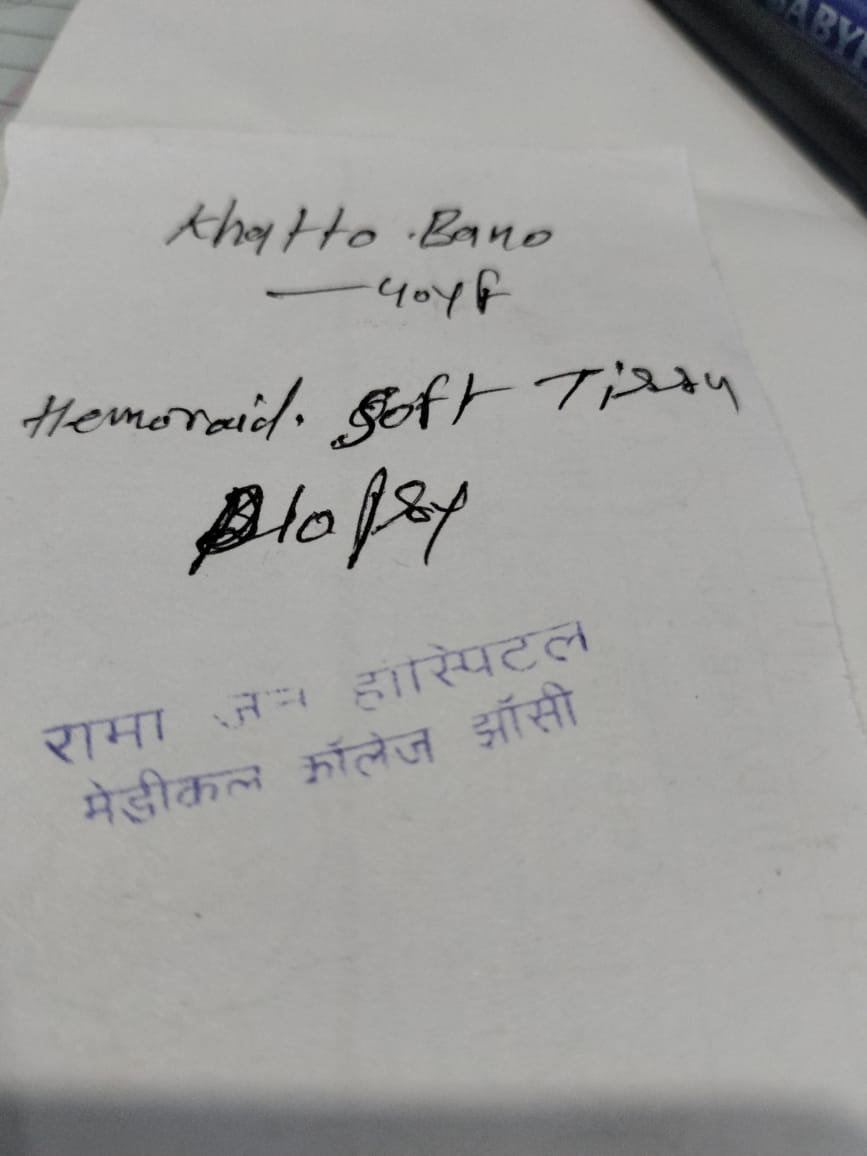 BABY
Khatto .Bano
— 40y F
Hemoraid. Soft Tissu
Biopsy
रामा जन हास्पिटल
मेडीकल कॉलेज झॉसी